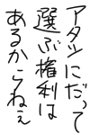 アタシにだって
選ぶ権利は
あるからねぇ